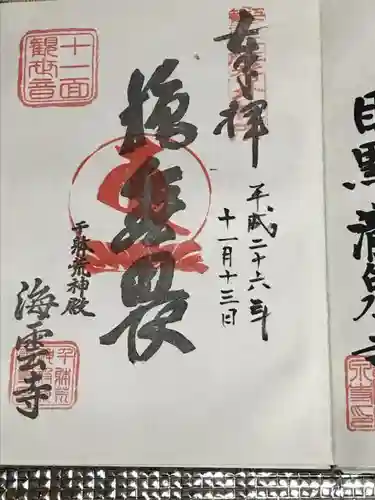 奉拝
平成二十六年
十一月十三日
施無畏
千躰荒神殿
海雲寺
十一面
観世音
目黒